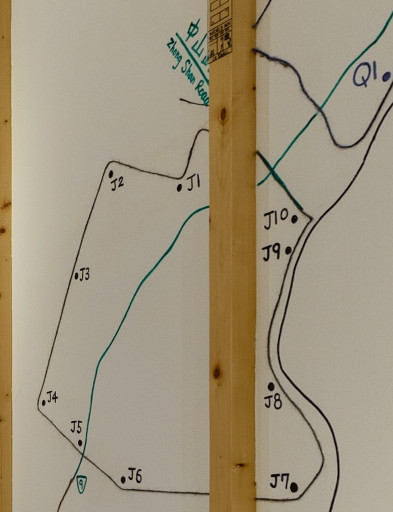 中山
Zhong Shan Road
Q1
J2
J1
J10
J9
J3
J8
J4
J5
9
J6
J7